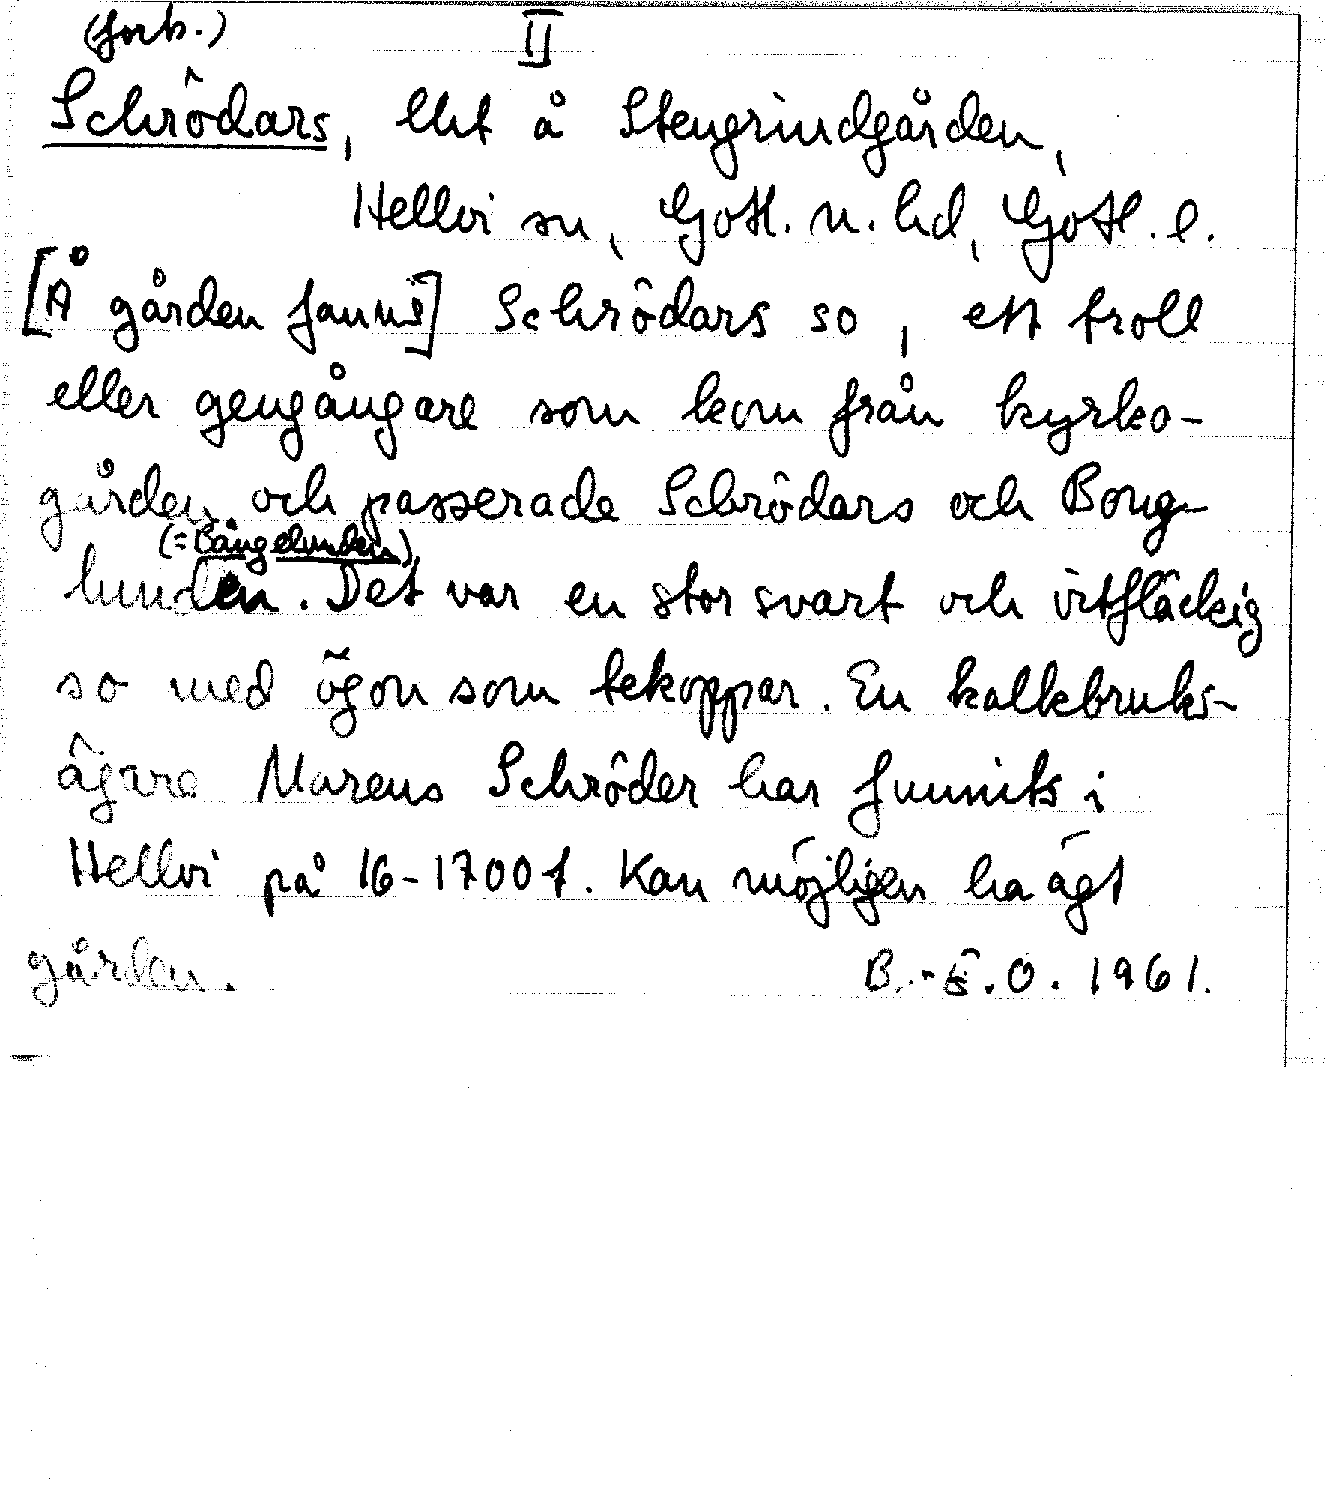 (forts.) II
Schrödars, lht å Stengrindgården,
Hellvi sn, Gotl. n. hd, Gotl. l.
[Å gården fanns] Schrödars so, ett troll
eller gengångare som kom från kyrko-
gården och passerade Schrödars och Bong-
(= Bångelunden)
lunden. Det var en stor svart och vitfläckig
so med ögon som tekoppar. En kalkbruks-
ägare Marcus Schröder har funnits i
Hellvi på 16-1700 t. Kan möjligen ha ägt
gården. B.-E.O. 1961.